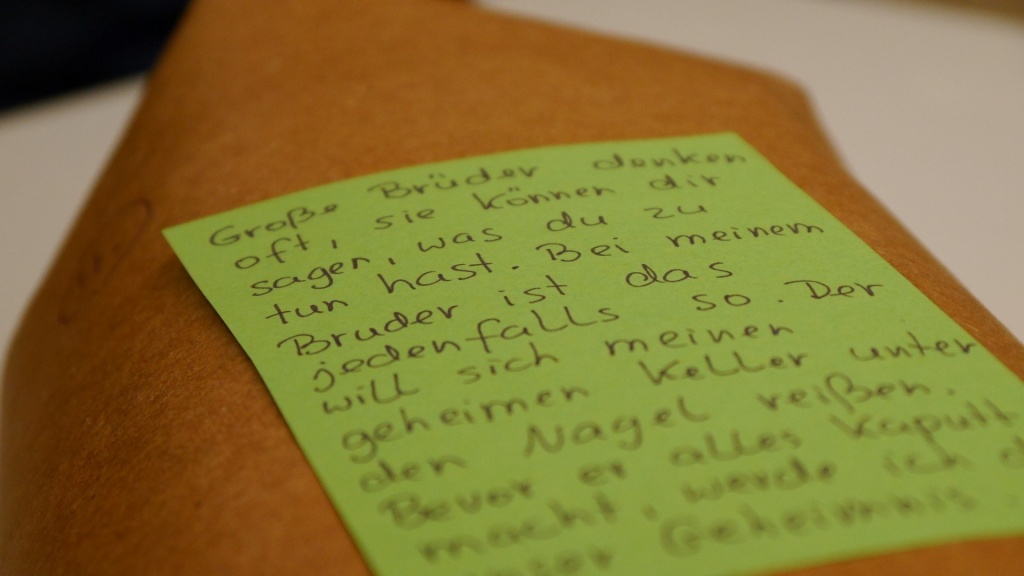 Große Brüder denken
oft, sie können dir
sagen, was du zu
tun hast. Bei meinem
Bruder ist das
jedenfalls so. Der
will sich meinen
geheimen Keller unter
den Nagel reißen.
Bevor er alles kaputt
macht, werde ich
unser Geheimnis